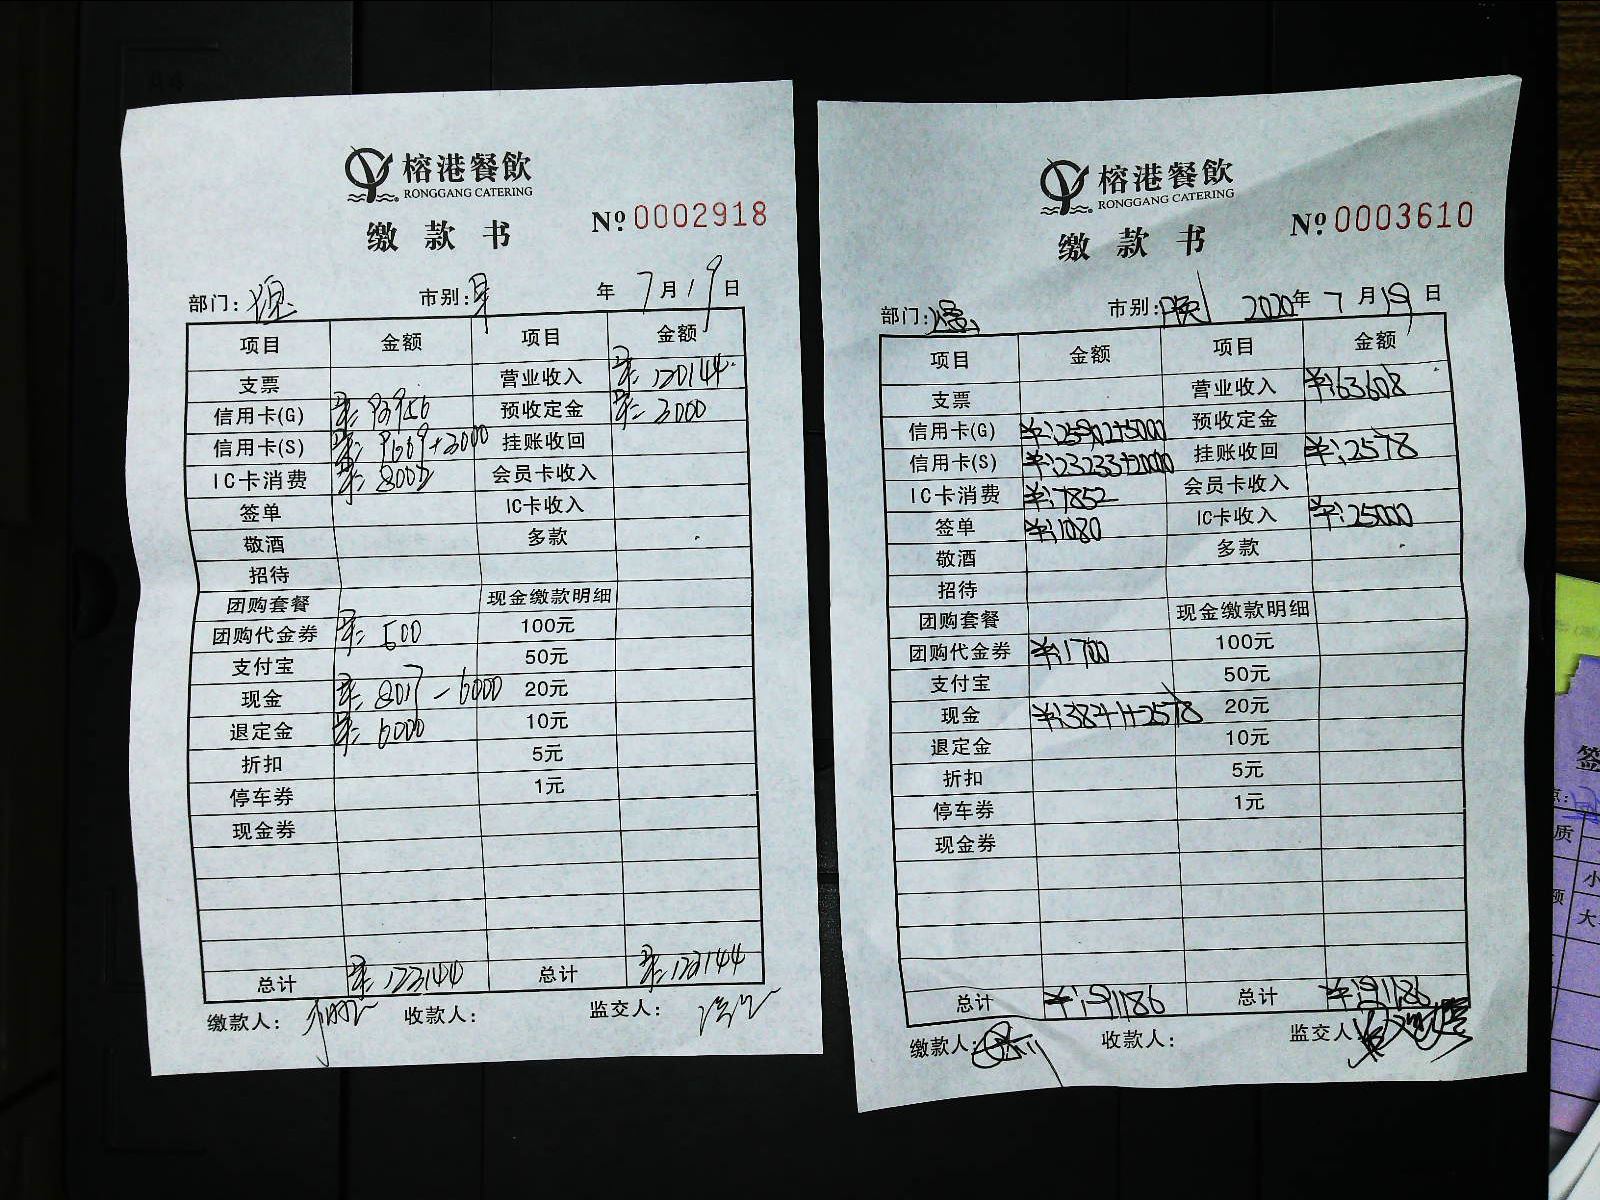 榕港餐飲
RONGGANG CATERING
缴款书 Nº 0002918
部门: 市别: 年 7月19日
项目 金额 项目 金额
支票 营业收入 120144
信用卡(G) 预收定金 3000
信用卡(S) 9609+3000 挂账收回
IC卡消费 会员卡收入
签单 IC卡收入
敬酒 多款
招待
团购套餐 现金缴款明细
团购代金券 500 100元
支付宝 50元
现金 8017-6000 20元
退定金 6000 10元
折扣 5元
停车券 1元
现金券
总计 123144 总计 123144
缴款人: 收款人: 监交人:
榕港餐飲
RONGGANG CATERING
缴款书 Nº 0003610
部门: 市别: 2020年 7月19日
项目 金额 项目 金额
支票 营业收入 ¥:63608
信用卡(G) ¥:25902+5000 预收定金
信用卡(S) ¥:23233+2000 挂账收回 ¥:2578
IC卡消费 ¥:7852 会员卡收入
签单 ¥:1080 IC卡收入 ¥:25000
敬酒 多款
招待
团购套餐 现金缴款明细
团购代金券 ¥:1700 100元
支付宝 50元
现金 ¥:3841+2578 20元
退定金 10元
折扣 5元
停车券 1元
现金券
总计 ¥:91186 总计 ¥:91186
缴款人: 收款人: 监交人:
签
质
小
额
大